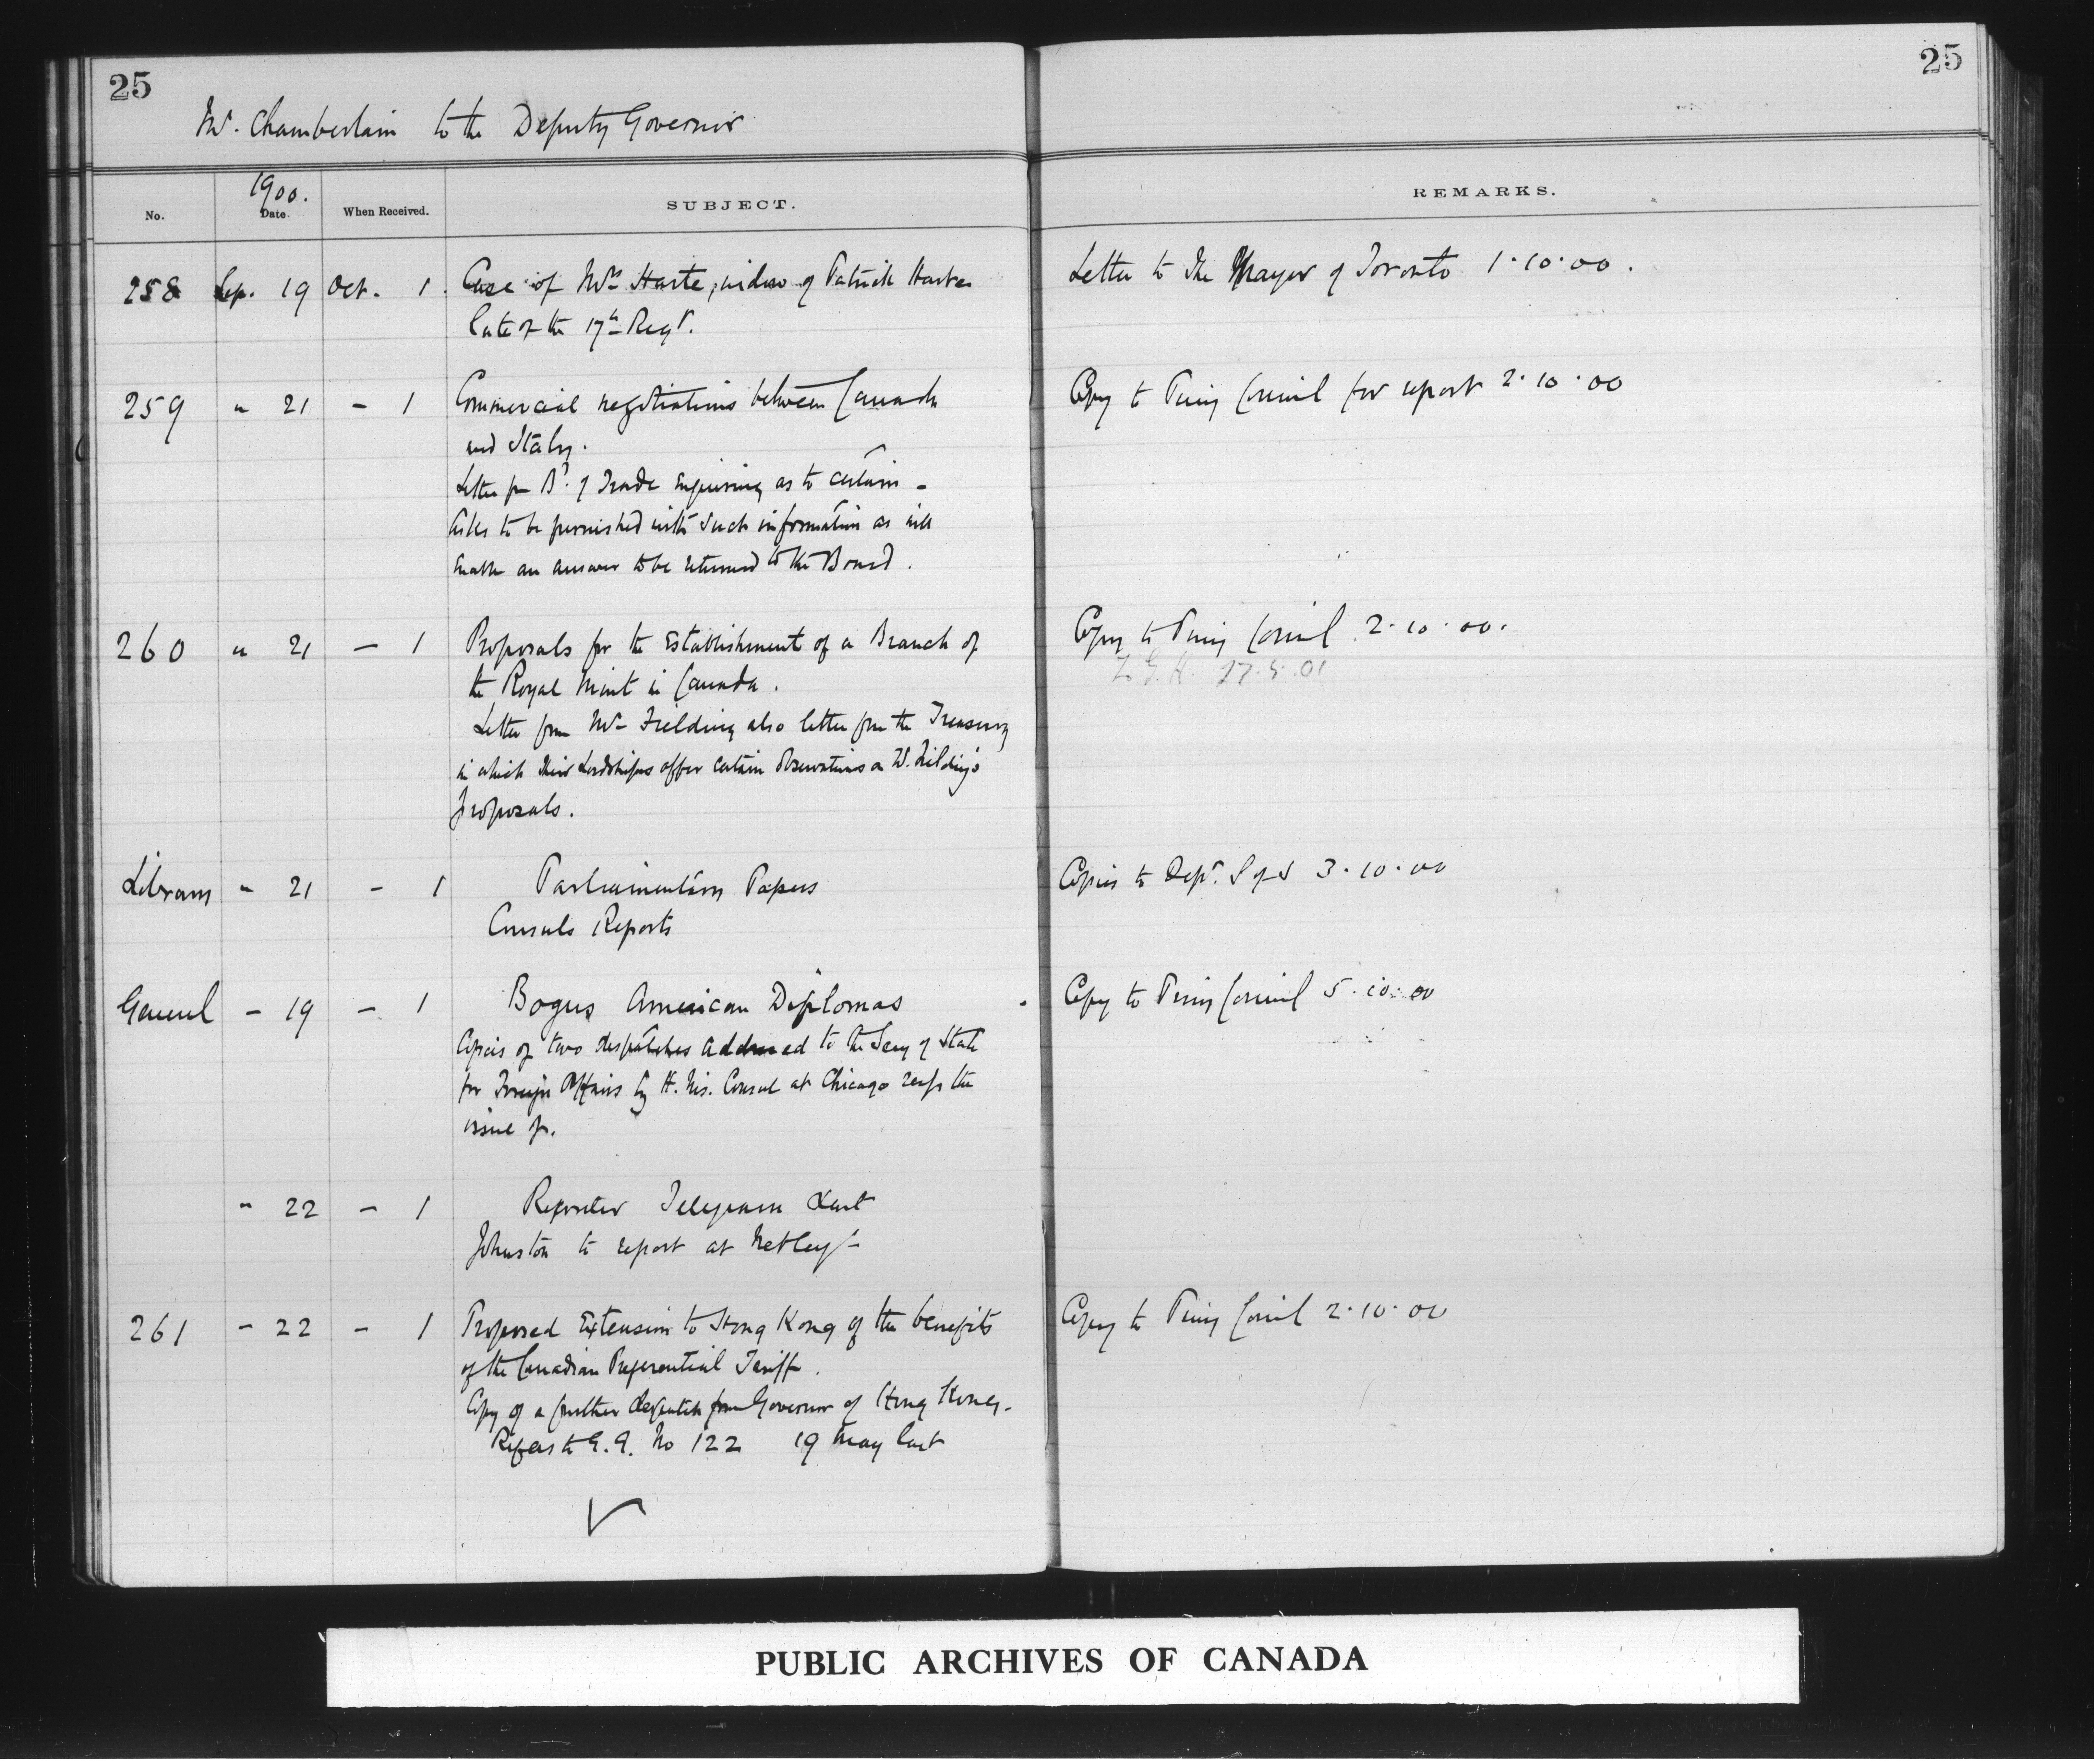 25
25
Mr. Chamberlain to the Deputy Governor
No.
1900.
Date.
When Received.
SUBJECT.
REMARKS.
258 Sep. 19 Oct. 1 Case of Mrs Harte, widow of Patrick Harte
late of the 17th Regt.
Letter to the Mayor of Toronto 1·10·00.
259 " 21 – 1 Commercial negotiations between Canada
and Italy.
Letter fm Bd of Trade enquiring as to certain –
Asks to be furnished with such information as will
enable an answer to be returned to the Board.
Copy to Privy Council for report 2·10·00
260 " 21 – 1 Proposals for the Establishment of a Branch of
the Royal Mint in Canada.
Letter from Mr Fielding also letter from the Treasury
in which their Lordships offer certain observations on Mr. Fielding's
proposals.
Copy to Privy Council 2·10·00.
G. H. 27.5.01
Library " 21 – 1 Parliamentary Papers
Consuls Reports
Copies to Dept. S of S 3·10·00
General – 19 – 1 Bogus American Diplomas
Copies of two despatches addressed to the Secy of State
for Foreign Affairs by H. Ms. Consul at Chicago resp the
issue of.
Copy to Privy Council 5·10·00
" 22 – 1 Reporter Telegram Lieut
Johnston to report at Netley –
261 – 22 – 1 Proposed Extension to Hong Kong of the benefits
of the Canadian Preferential Tariff.
Copy of a further despatch from Governor of Hong Kong.
Refers to G. G. No 122 19 May last
Copy to Privy Council 2·10·00
PUBLIC ARCHIVES OF CANADA